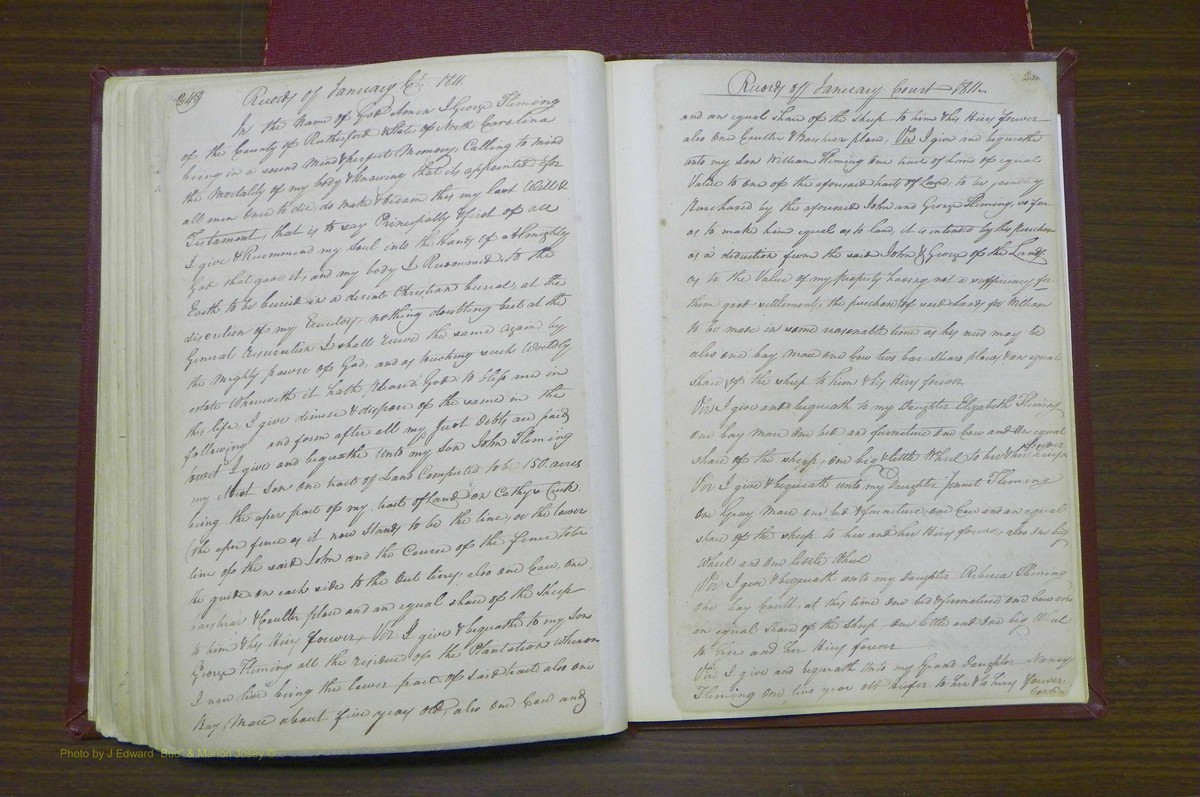 Records of January Ct. 1811.
In the Name of God Amen I George Fleming
of the County of Rutherford & State of North Carolina
being in a sound Mind & perfect Memory, Calling to mind
the Mortality of my body & knowing that its appointed for
all men Once to die, do make & this my last Will &
Testament, that is to say Principally & first of all
I give & Recommend my Soul into the hands of Allmighty
God that gave it, and my body I Recommend, to the
Earth to be buried in a decent Christian burial, at the
discretion of my Executors, nothing doubting but at the
General Resurrection I shall receive the same again by
the Mighty power of God, and as touching such Worldly
estate Wherewith it hath pleased God to bless me in
this life, I give demise & dispose of the same in the
following and form after all my Just debts are paid
I give and bequeathe Unto my son John Fleming
my Son One tract of Land Computed to be 150. acres
being the uper part of my tract of Land on Cathys Creek
the uper fence as it now Stands to be the line, or the lower
line of the said John and the Course of the fence to be
the guide on each side to the out lines, also One Cow, One
& Coulter plow and an equal share of the Sheep
to him & his Heirs forever, I give & bequeathe to my Son
George Fleming all the residue of the Plantation whereon
I now live being the lower part of said tract also One
Bay Mare about five years old, also One Cow and
Records of January Court 1811.
and an equal Share of the Sheep to him & his Heirs forever
also One Coulter & plow, I give and bequeath
unto my son William Fleming One tract of Land of equal
Value to one of the aforesaid tracts of Land, to be jointly
Purchased by the aforesaid John and George Fleming, so far
as to make him equal as to land, it is intended by this purchase
as a deduction from the said John & George of the Land
as to the Value of my Property having not a sufficiency for
them good settlements, the purchase of said Lands for William
to be made in some reasonable time as his need may be
also one bay mare One Cow two bar Share plows & an equal
share of the sheep to him & his Heirs forever
I give and bequeath to my Daughter Elizabeth Fleming
one bay mare One bed and furniture One Cow and an equal
share of the sheep, one big & little Wheel to her & her Heirs forever
I give & bequeath unto my daughter Jennet Fleming
One Gray Mare one bed & furniture, one Cow and an equal
share of the sheep to her and her Heirs forever, also One big
Wheel and One little Wheel
I give & bequeath unto my daughter Rebecca Fleming
one bay Coult, at this time One bed & furniture and Cow and
an equal Share of the Sheep One little and One big Wheel
to her and her Heirs forever
I give and bequeath Unto my Grand Daughter Nancy
Fleming One two year old heifer to her & her Heirs forever
Photo by J Edward "Bud" & Marion Josey ©